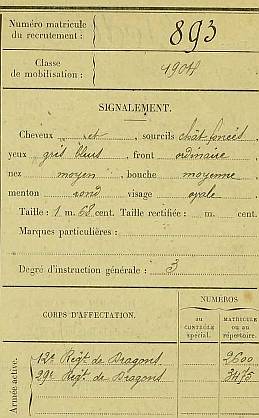 Numéro matricule
du recrutement : 893
Classe
de mobilisation : 1904
SIGNALEMENT.
Cheveux et , sourcils chât foncés ,
yeux gris bleus , front ordinaire ,
nez moyen , bouche moyenne ,
menton rond visage ovale
Taille : 1 m. 68 cent. Taille rectifiée : m. cent.
Marques particulières :
Degré d'instruction générale : 3
CORPS D'AFFECTATION.
NUMÉROS
au
CONTRÔLE
spécial.
MATRICULE
ou au
répertoire.
Armée active.
12e Régt. de Dragons 2600
29e Régt. de Dragons 3475